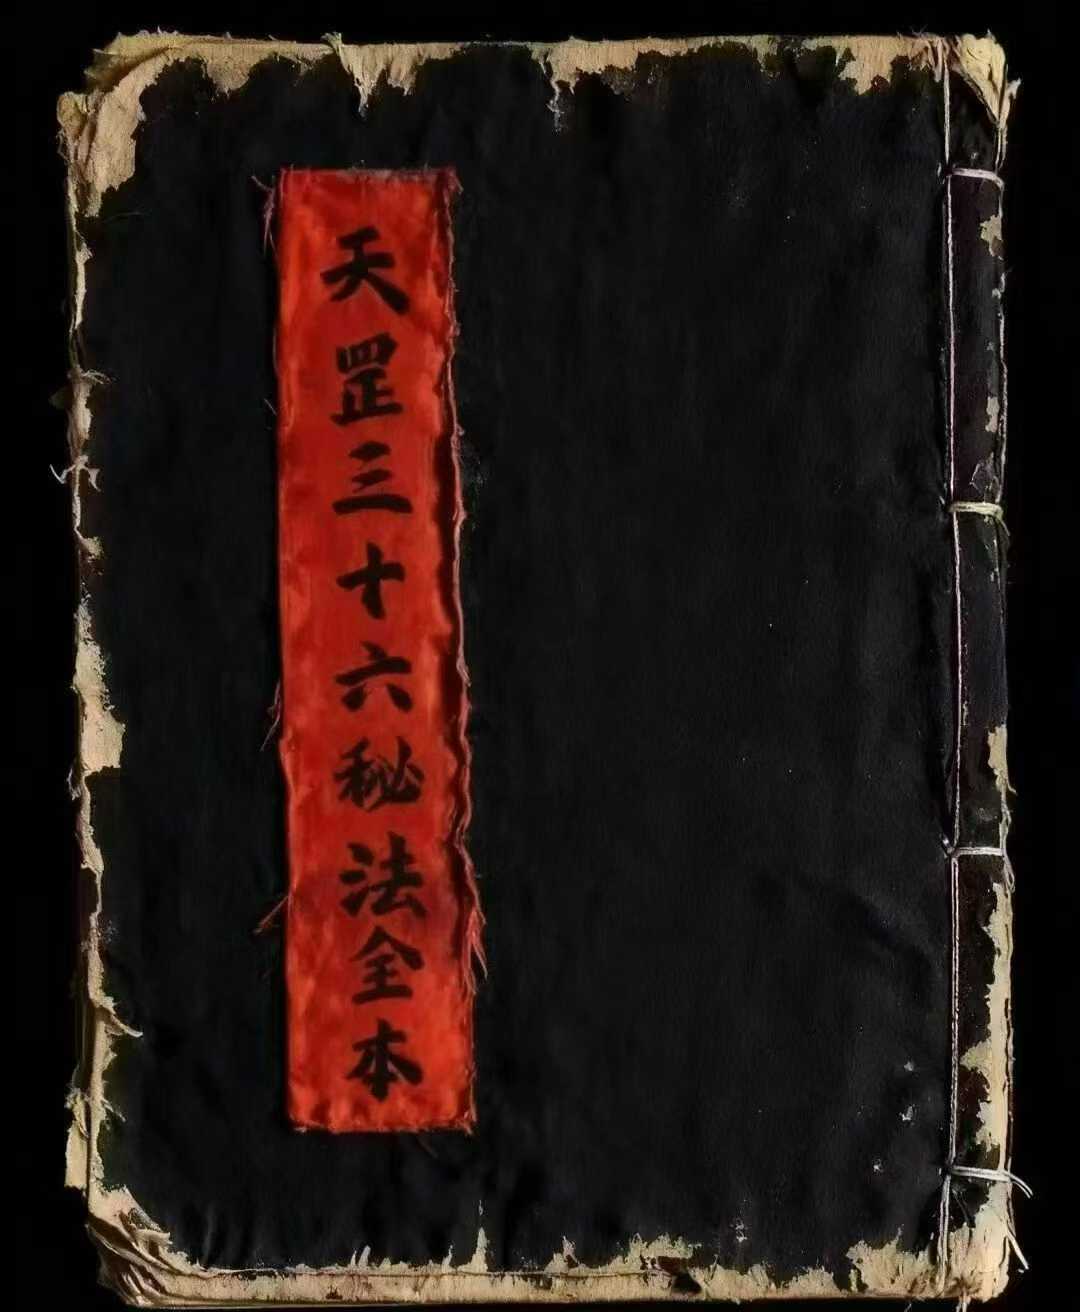 天罡三十六秘法全本